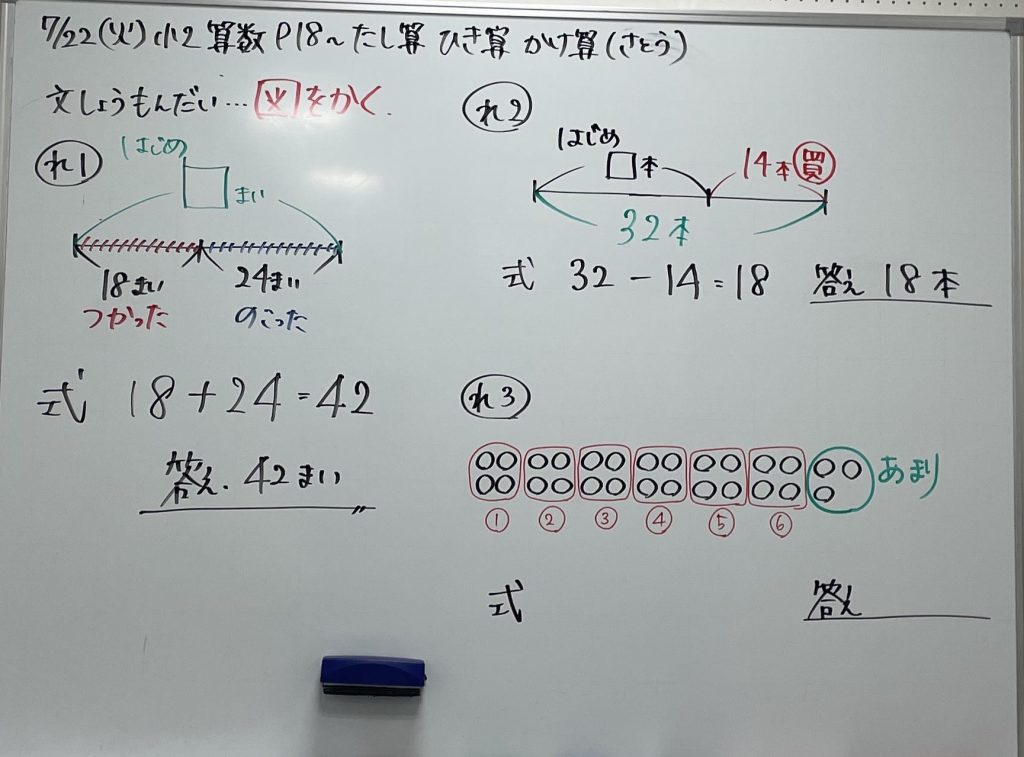 7/22(火) 小2 算数 P18～たし算 ひき算 かけ算(さとう)
文しょうもんだい…図をかく.
れ1
はじめ
□まい
18まい 24まい
つかった のこった
式 18+24=42
答え. 42まい
れ2
はじめ
□本 14本 買
32本
式 32-14=18 答え 18本
れ3
あまり
① ② ③ ④ ⑤ ⑥
式 答え